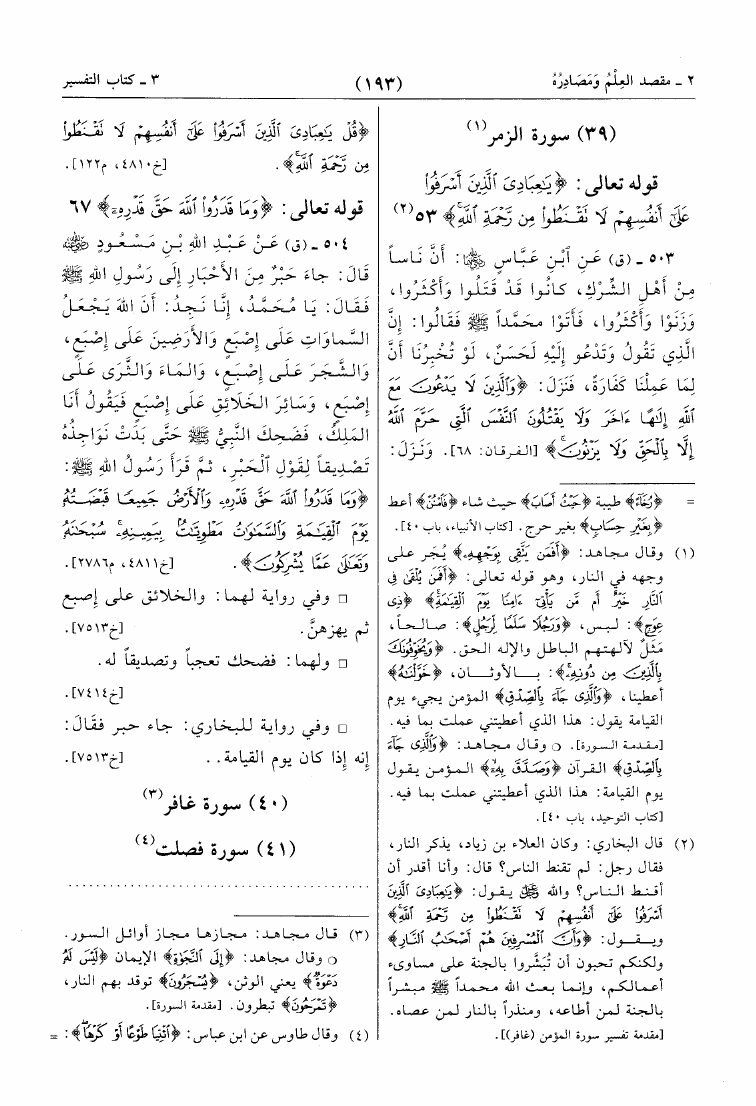 ٢ ـ مقصد العِلْمُ وَمَصَادِرُهُ
(١٩٣)
٣ ـ كتاب التفسير
(٣٩) سورة الزمر(١)
قوله تعالى: ﴿يَٰعِبَادِىَ ٱلَّذِينَ أَسْرَفُوا۟
عَلَىٰٓ أَنفُسِهِمْ لَا تَقْنَطُوا۟ مِن رَّحْمَةِ ٱللَّهِ﴾ ٥٣(٢)
٥٠٣ ـ (ق) عَنِ ٱبْنِ عَبَّاسٍ ﵄: أَنَّ نَاساً
مِنْ أَهْلِ الشِّرْكِ، كانُوا قَدْ قَتَلُوا وَأَكْثَرُوا،
وَزَنَوْا وَأَكْثَرُوا، فَأَتَوْا محَمَّداً ﷺ فَقَالُوا: إِنَّ
الَّذِي تَقُولُ وَتَدْعُو إِلَيْهِ لَحَسَنٌ، لَوْ تُخْبِرُنَا أَنَّ
لِمَا عَمِلْنَا كَفَّارَةً، فَنَزَلَ: ﴿وَٱلَّذِينَ لَا يَدْعُونَ مَعَ
ٱللَّهِ إِلَٰهًا ءَاخَرَ وَلَا يَقْتُلُونَ ٱلنَّفْسَ ٱلَّتِى حَرَّمَ ٱللَّهُ
إِلَّا بِٱلْحَقِّ وَلَا يَزْنُونَ﴾ [الفرقان: ٦٨]. وَنَزَلَ:
= ﴿رُخَآءً﴾ طيبة ﴿حَيْثُ أَصَابَ﴾ حيث شاء ﴿فَٱمْنُنْ﴾ أعط
﴿بِغَيْرِ حِسَابٍ﴾ بغير حرج. [كتاب الأنبياء، باب ٤٠].
(١) وقال مجاهد: ﴿أَفَمَن يَتَّقِى بِوَجْهِهِۦ﴾ يُجَر على
وجهه في النار، وهو قوله تعالى: ﴿أَفَمَن يُلْقَىٰ فِى
ٱلنَّارِ خَيْرٌ أَم مَّن يَأْتِىٓ ءَامِنًا يَوْمَ ٱلْقِيَٰمَةِ﴾ ﴿ذِى
عِوَجٍ﴾: لبس، ﴿وَرَجُلًا سَلَمًا لِّرَجُلٍ﴾: صالحاً،
مَثَلٌ لآلهتهم الباطل والإله الحق. ﴿وَيُخَوِّفُونَكَ
بِٱلَّذِينَ مِن دُونِهِۦ﴾: بالأوثان، ﴿خَوَّلْنَٰهُ﴾
أعطينا، ﴿وَٱلَّذِى جَآءَ بِٱلصِّدْقِ﴾ المؤمن يجيء يوم
القيامة يقول: هذا الذي أعطيتني عملت بما فيه.
[مقدمة السورة]. ○ وقال مجاهد: ﴿وَٱلَّذِى جَآءَ
بِٱلصِّدْقِ﴾ القرآن ﴿وَصَدَّقَ بِهِۦ﴾ المؤمن يقول
يوم القيامة: هذا الذي أعطيتني عملت بما فيه.
[كتاب التوحيد، باب ٤٠].
(٢) قال البخاري: وكان العلاء بن زياد، يذكر النار،
فقال رجل: لم تقنط الناس؟ قال: وأنا أقدر أن
أقنط الناس؟ والله ﷿ يقول: ﴿يَٰعِبَادِىَ ٱلَّذِينَ
أَسْرَفُوا۟ عَلَىٰٓ أَنفُسِهِمْ لَا تَقْنَطُوا۟ مِن رَّحْمَةِ ٱللَّهِ﴾
ويقول: ﴿وَأَنَّ ٱلْمُسْرِفِينَ هُمْ أَصْحَٰبُ ٱلنَّارِ﴾
ولكنكم تحبون أن تُبَشَّروا بالجنة على مساوىء
أعمالكم، وإنما بعث الله محمداً ﷺ مبشراً
بالجنة لمن أطاعه، ومنذراً بالنار لمن عصاه.
[مقدمة تفسير سورة المؤمن (غافر)].
﴿قُلْ يَٰعِبَادِىَ ٱلَّذِينَ أَسْرَفُوا۟ عَلَىٰٓ أَنفُسِهِمْ لَا تَقْنَطُوا۟
مِن رَّحْمَةِ ٱللَّهِ﴾. [خ٤٨١٠، م١٢٢].
قوله تعالى: ﴿وَمَا قَدَرُوا۟ ٱللَّهَ حَقَّ قَدْرِهِۦ﴾ ٦٧
٥٠٤ ـ (ق) عَنْ عَبْدِ اللهِ بْنِ مَسْعُودٍ ﵁
قَالَ: جاءَ حَبْرٌ مِنَ الأَحْبَارِ إِلَى رَسُولِ اللهِ ﷺ
فَقَالَ: يَا مُحَمَّدُ، إِنَّا نَجِدُ: أَنَّ اللهَ يَجْعَلُ
السَّماوَاتِ عَلَى إِصْبَعٍ وَالأَرَضِينَ عَلَى إِصْبَعٍ،
وَالشَّجَرَ عَلَى إِصْبَعٍ، وَالمَاءَ وَالثَّرَى عَلَى
إِصْبَعٍ، وَسَائِرَ الخَلَائِقِ عَلَى إِصْبَعٍ فَيَقُولُ أَنَا
المَلِكُ، فَضَحِكَ النَّبِيُّ ﷺ حَتَّى بَدَتْ نَوَاجِذُهُ
تَصْدِيقاً لِقَوْلِ الْحَبْرِ، ثُمَّ قَرَأَ رَسُولُ اللهِ ﷺ:
﴿وَمَا قَدَرُوا۟ ٱللَّهَ حَقَّ قَدْرِهِۦ وَٱلْأَرْضُ جَمِيعًا قَبْضَتُهُۥ
يَوْمَ ٱلْقِيَٰمَةِ وَٱلسَّمَٰوَٰتُ مَطْوِيَّٰتٌۢ بِيَمِينِهِۦ سُبْحَٰنَهُۥ
وَتَعَٰلَىٰ عَمَّا يُشْرِكُونَ﴾. [خ٤٨١١، م٢٧٨٦].
□ وفي رواية لهما: والخلائق على إصبع
ثم يهزهنَّ. [خ٧٥١٣].
□ ولهما: فضحك تعجباً وتصديقاً له.
[خ٧٤١٤].
□ وفي رواية للبخاري: جاء حبر فقَالَ:
إنه إذَا كان يوم القيامة.. [خ٧٥١٣].
(٤٠) سورة غافر(٣)
(٤١) سورة فصلت(٤)
........................................
(٣) قال مجاهد: مجازها مجاز أوائل السور.
○ وقال مجاهد: ﴿إِلَى ٱلنَّجَوٰةِ﴾ الإيمان ﴿لَيْسَ لَهُۥ
دَعْوَةٌ﴾ يعني الوثن، ﴿يُسْجَرُونَ﴾ توقد بهم النار،
﴿تَمْرَحُونَ﴾ تبطرون. [مقدمة السورة].
(٤) وقال طاوس عن ابن عباس: ﴿ٱئْتِيَا طَوْعًا أَوْ كَرْهًا﴾: =